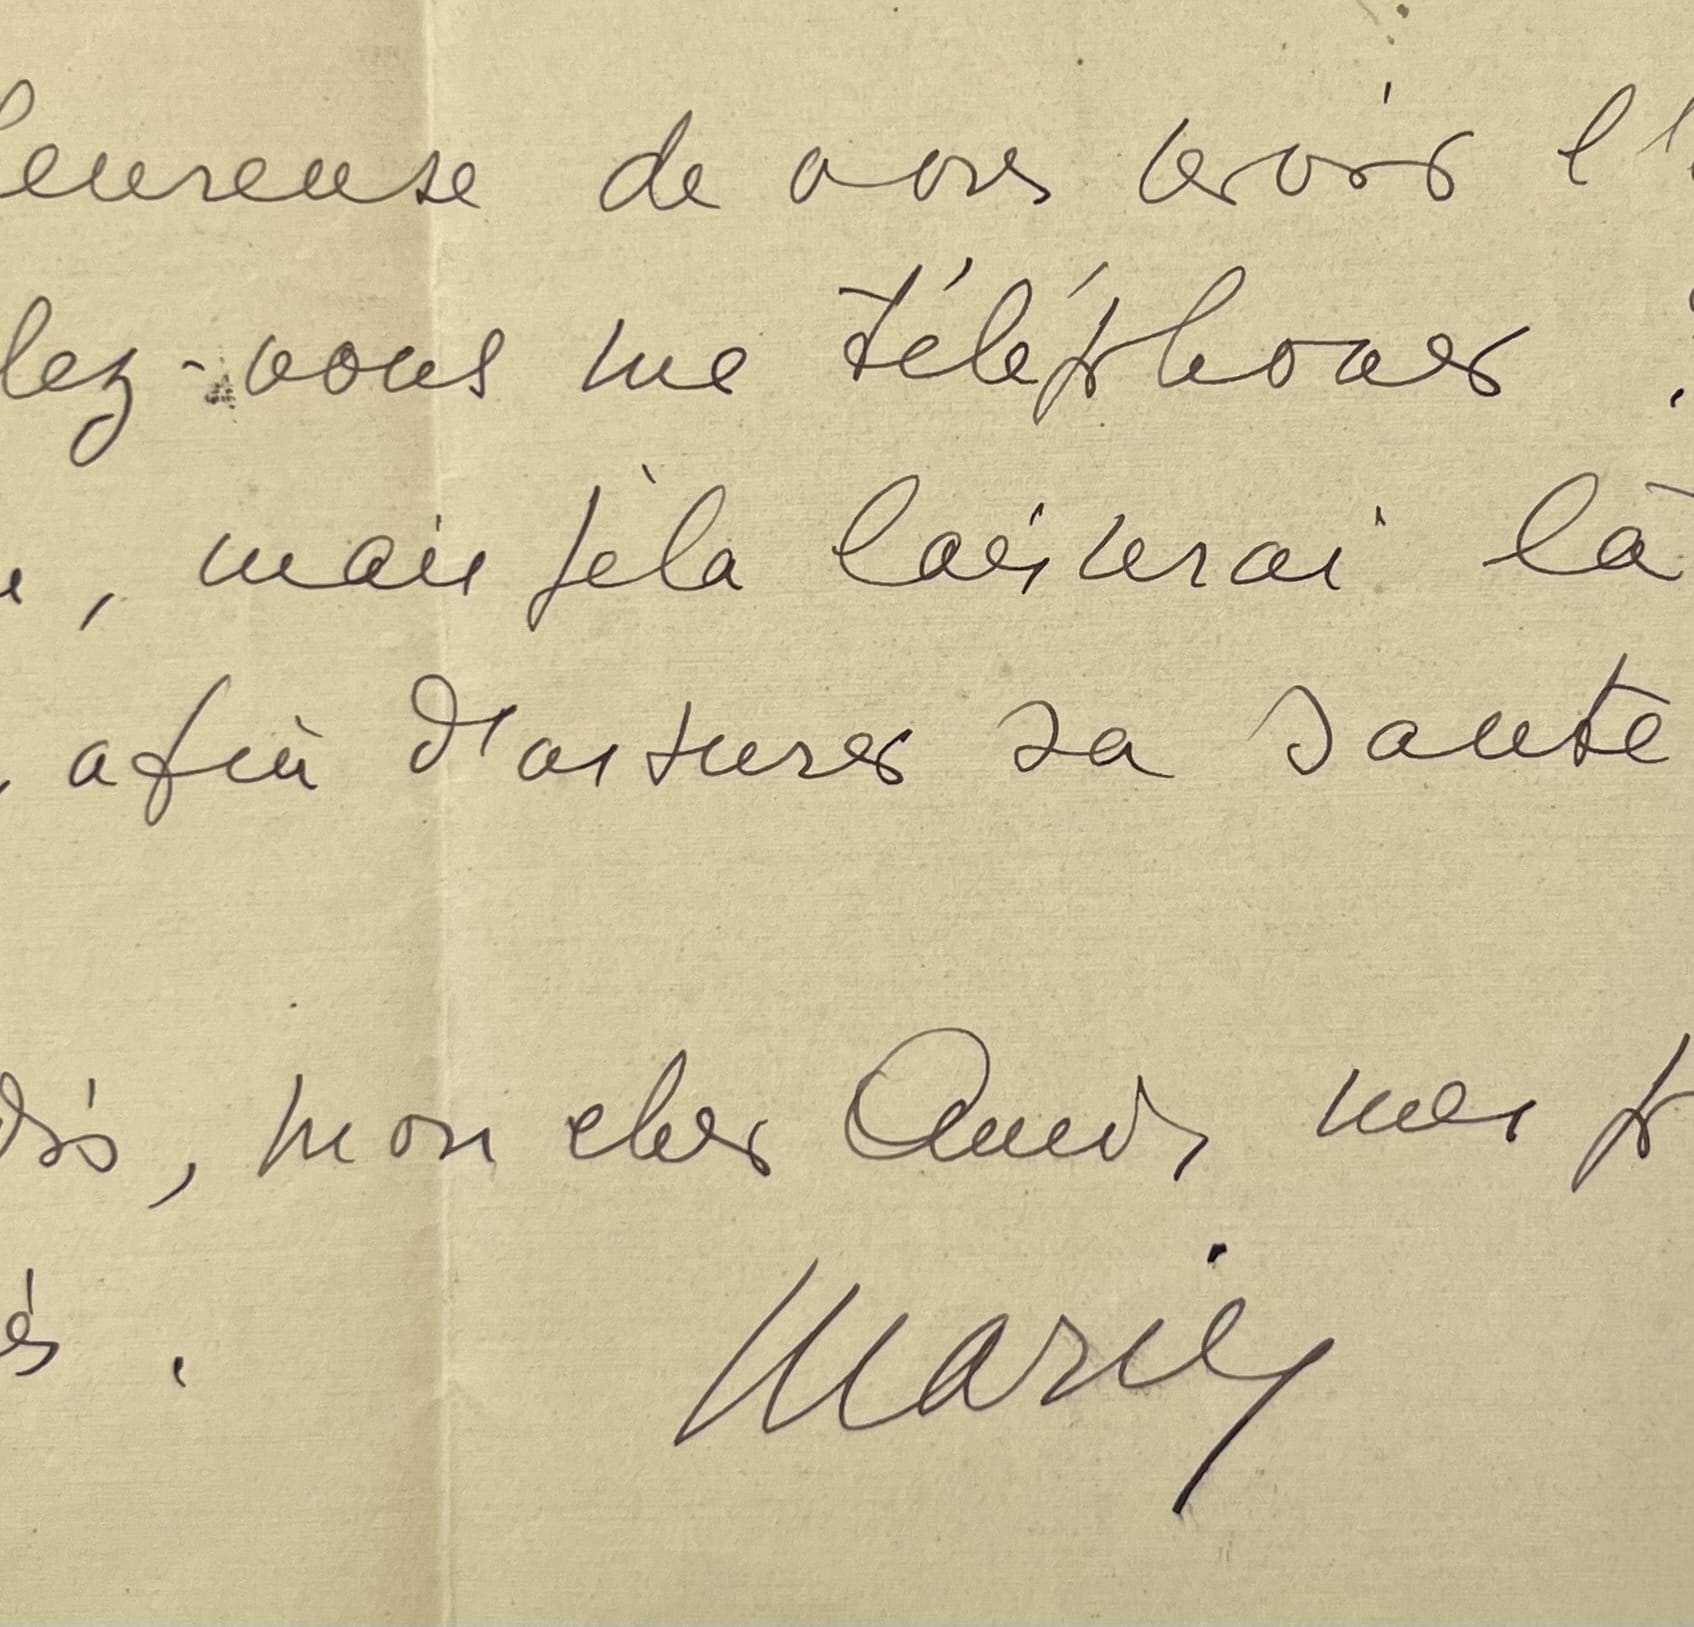 heureuse de vous voir l'
lez-vous me téléphoner ?
, mais je la laisserai là
, afin d'assurer sa santé
, mon cher Ami, mes
Marie